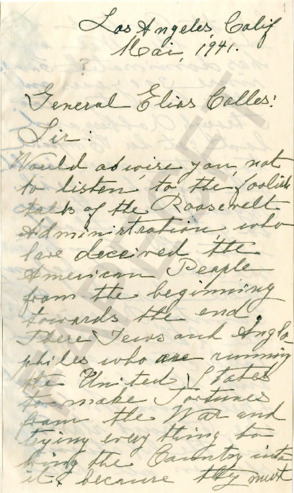 Los Angeles, Calif
Mai, 1941.
?
General Elias Calles:
Sir:
Would adwise you not
to listen to the foolish
talk of the Roosevelt
Administration, who
have deceived the
American People
from the beginning
towards the end,
There Jews and Anglo
philes who are running
the United States
to make Fortunes
from the War and
trying everything to
bring the Country into
it, because they must